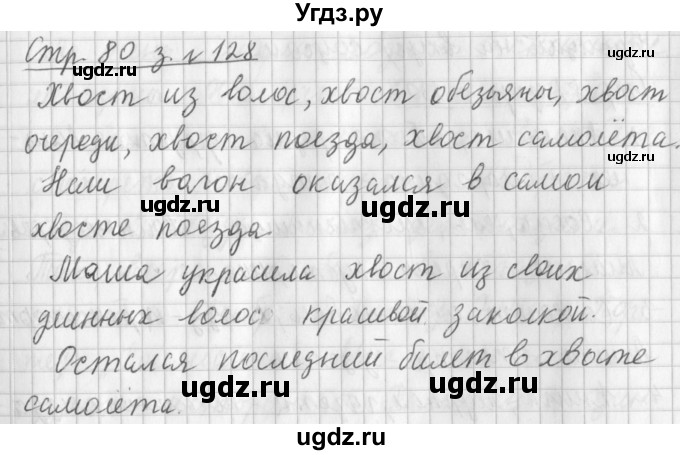 Угдз.ру
Стр. 80 з. № 128
ugdz.ru ugdz.ru
Хвост из волос, хвост обезьяны, хвост
ugdz.ru
очереди, хвост поезда, хвост самолёта.
Наш вагон оказался в самом
ugdz.ru ugdz.ru
хвосте поезда
Маша украсила хвост из своих
длинных волос красивой заколкой.
ugdz.ru
Остался последний билет в хвосте
ugdz.ru ugdz.ru
самолёта.
ugdz.ru